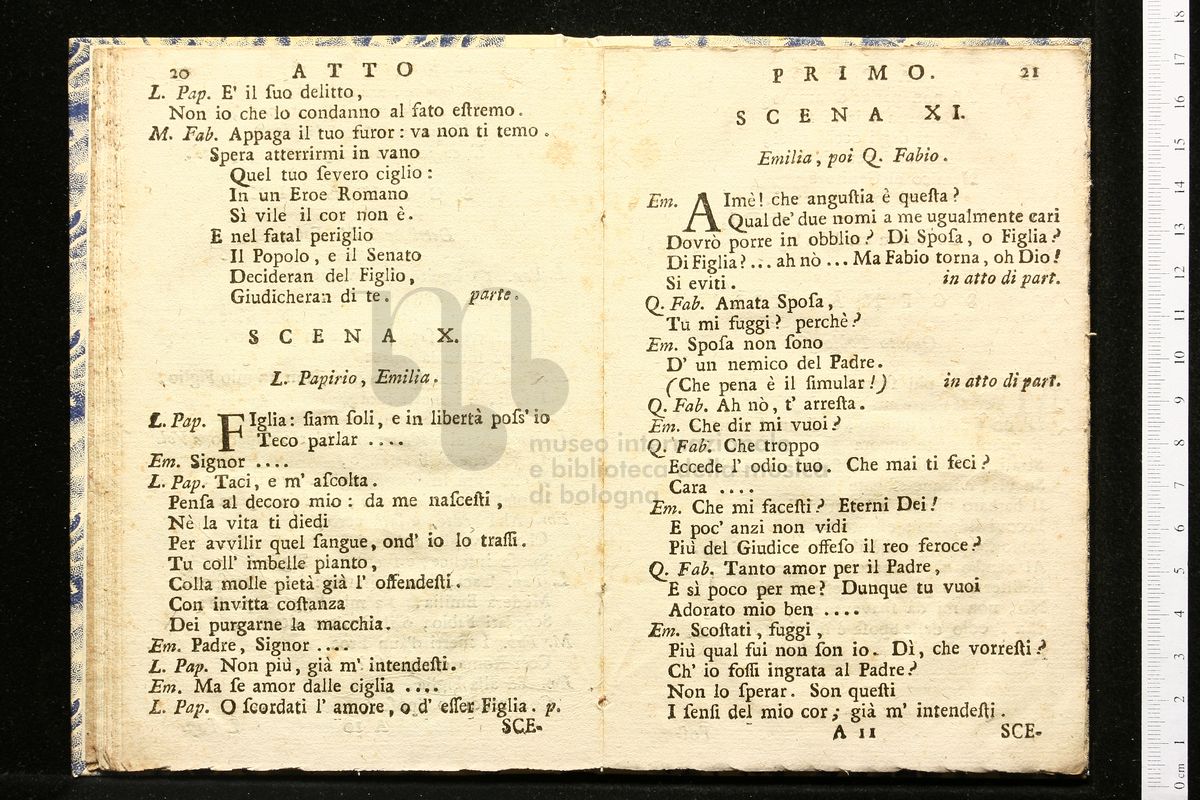 20 ATTO
L. Pap. E' il ſuo delitto,
Non io che lo condanno al fato eſtremo.
M. Fab. Appaga il tuo furor : va non ti temo.
Spera atterrirmi in vano
Quel tuo ſevero ciglio :
In un Eroe Romano
Sì vile il cor non è.
E nel fatal periglio
Il Popolo, e il Senato
Decideran del Figlio,
Giudicheran di te. parte.
SCENA X.
L. Papirio, Emilia.
L. Pap. FIglia: ſiam ſoli, e in libertà poſs' io
Teco parlar ....
Em. Signor ....
L. Pap. Taci, e m' aſcolta.
Penſa al decoro mio : da me naſceſti,
Nè la vita ti diedi
Per avvilir quel ſangue, ond' io lo traſſi.
Tu coll' imbelle pianto,
Colla molle pietà già l' offendeſti.
Con invitta coſtanza
Dei purgarne la macchia.
Em. Padre, Signor ....
L. Pap. Non più, già m' intendeſti.
Em. Ma ſe amor dalle ciglia ....
L. Pap. O ſcordati l' amore, o d' eſſer Figlia. p.
SCE-
PRIMO. 21
SCENA XI.
Emilia, poi Q. Fabio.
Em. AImè! che anguſtia è queſta?
Qual de' due nomi a me ugualmente cari
Dovrò porre in obblio? Di Spoſa, o Figlia?
Di Figlia?... ah nò ... Ma Fabio torna, oh Dio!
Si eviti. in atto di part.
Q. Fab. Amata Spoſa,
Tu mi fuggi? perchè?
Em. Spoſa non ſono
D' un nemico del Padre.
(Che pena è il ſimular!) in atto di part.
Q. Fab. Ah nò, t' arreſta.
Em. Che dir mi vuoi?
Q. Fab. Che troppo
Eccede l' odio tuo. Che mai ti feci?
Cara ....
Em. Che mi faceſti? Eterni Dei!
E poc' anzi non vidi
Più del Giudice offeſo il reo feroce?
Q. Fab. Tanto amor per il Padre,
E sì poco per me? Dunque tu vuoi
Adorato mio ben ....
Em. Scoſtati, fuggi,
Più qual fui non ſon io. Dì, che vorreſti?
Ch' io foſſi ingrata al Padre?
Non lo ſperar. Son queſti
I ſenſi del mio cor; già m' intendeſti.
A 11 SCE-
museo internazionale
e biblioteca della musica
di bologna
0 cm 1 2 3 4 5 6 7 8 9 10 11 12 13 14 15 16 17 18